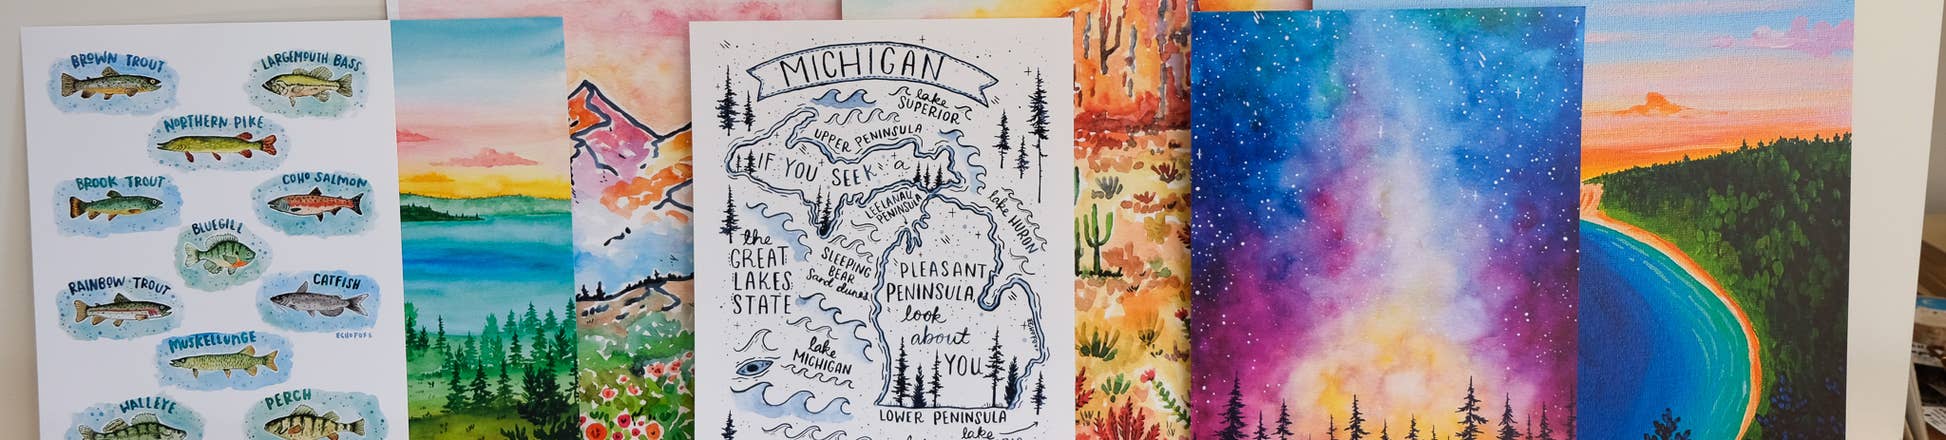 BROWN TROUT
LARGEMOUTH BASS
NORTHERN PIKE
BROOK TROUT
COHO SALMON
BLUEGILL
RAINBOW TROUT
CATFISH
MUSKELLUNGE
WALLEYE
PERCH
MICHIGAN
lake
SUPERIOR
UPPER PENINSULA
IF YOU SEEK a
LEELANAU
PENINSULA
lake HURON
the
GREAT
LAKES
STATE
SLEEPING
BEAR
Sand dunes
PLEASANT
PENINSULA
look
about
YOU
lake
MICHIGAN
LOWER PENINSULA
lake